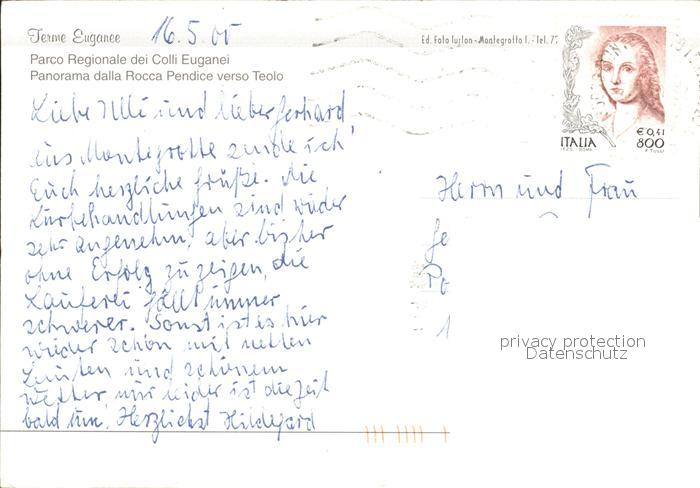 Terme Euganee 16.5.05
Parco Regionale dei Colli Euganei
Panorama dalla Rocca Pendice verso Teolo
Ed. Foto - Montegrotto T. - Tel. 7
ITALIA
€ 0,41
800
Liebe Ulli und lieber Gerhard
aus Montegrotto sende ich
Euch herzliche Grüße. Die
Kurbehandlungen sind wieder
sehr angenehm, aber bisher
ohne Erfolg zu zeigen, die
Lauferei fällt immer
schwerer. Sonst ist es hier
wieder schön mit netten
Leuten und schönem
Wetter, nur leider ist die Zeit
bald um. Herzlichst Hildegard
Herrn und Frau
Ge
Po
1
privacy protection
Datenschutz